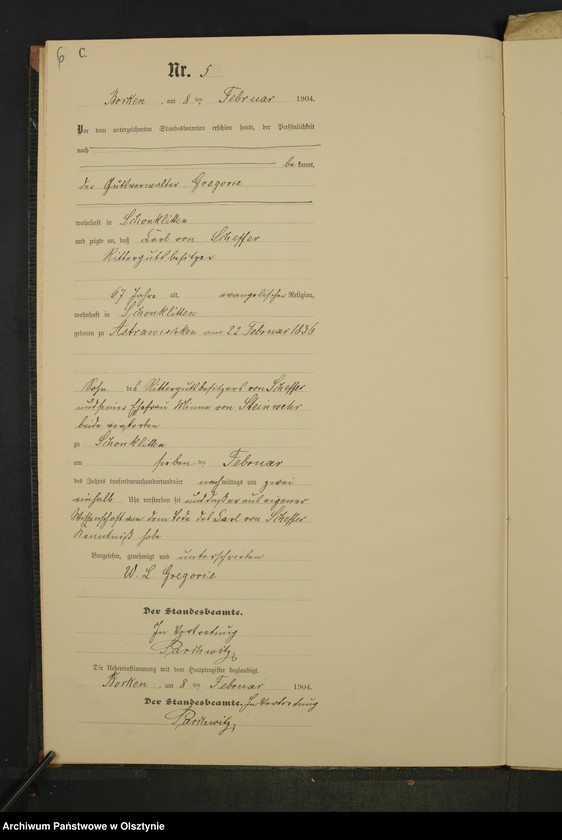 6 C.
Nr. 5
Borken, am 8 ten Februar 1904.
Vor dem unterzeichneten Standesbeamten erschien heute, der Persönlichkeit
nach
be kannt,
der Gutsverwalter Gregorie
wohnhaft in Schönklitten
und zeigte an, daß Karl von Scheffer
Rittergutsbesitzer
67 Jahre alt, evangelischer Religion,
wohnhaft in Schönklitten
geboren zu Astrawischken am 22 Februar 1836
Sohn des Rittergutsbesitzers von Scheffer
und seiner Ehefrau Minna von Steinwehr
beide verstorben
zu Schönklitten
am sieben ten Februar
des Jahres tausendneunhundertundvier nachmittags um zwei
einhalb Uhr verstorben sei und daß er aus eigener
Wissenschaft von dem Tode des Carl von Scheffer
Kenntniß habe
Vorgelesen, genehmigt und unterschrieben
W. L Gregorie
Der Standesbeamte.
In Vertretung
Die Uebereinstimmung mit dem Hauptregister beglaubigt.
Borken, am 8 ten Februar 1904.
Der Standesbeamte. In Vertretung
Archiwum Państwowe w Olsztynie